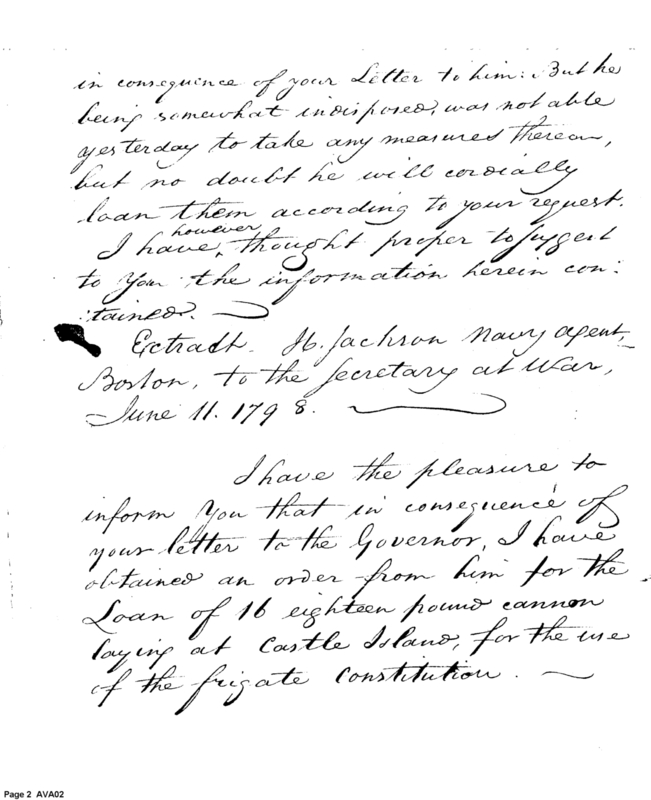 in consequence of your Letter to him: But he
being somewhat indisposed, was not able
yesterday to take any measures thereon,
but no doubt he will cordially
loan them according to your request.
however
I have, thought proper to suggest
to You the information herein con:
:tained.
Extract. H. Jackson Navy agent,
Boston, to the Secretary at War,
June 11. 1798.
I have the pleasure to
inform You that in consequence of
your letter to the Governor, I have
obtained an order from him for the
Loan of 16 eighteen pound cannon
laying at Castle Island, for the use
of the frigate Constitution.
Page 2 AVA02